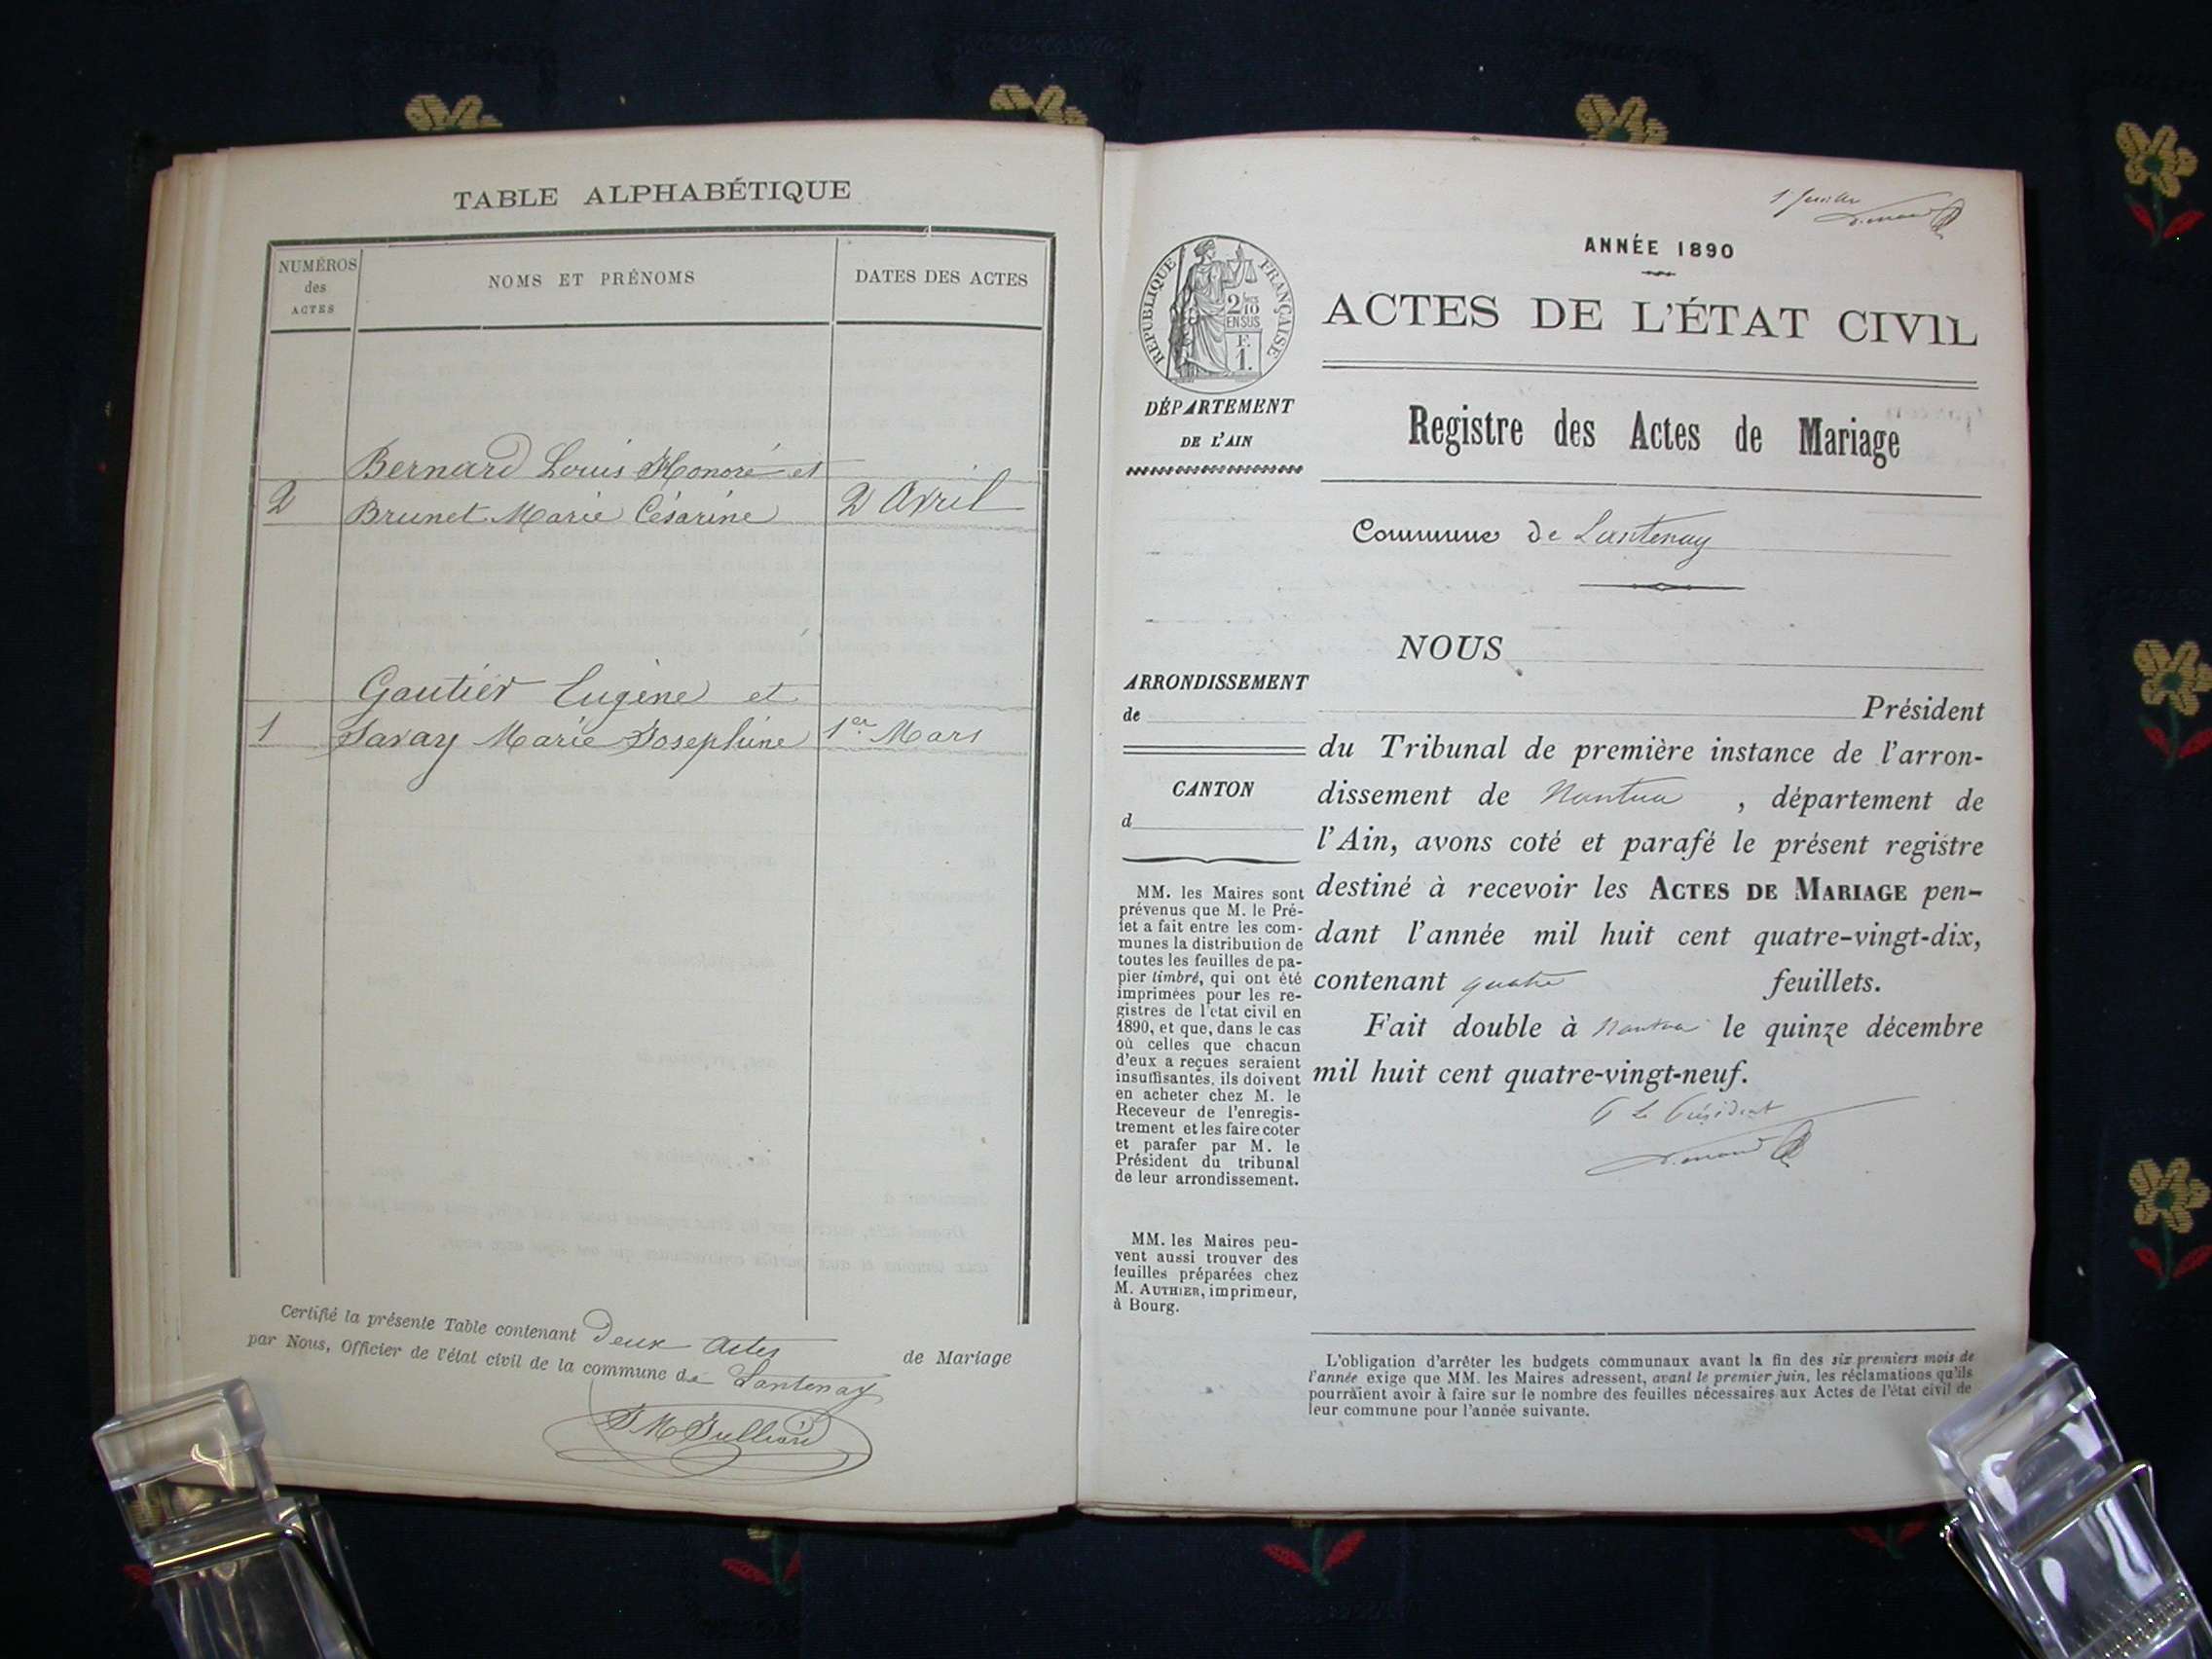 TABLE ALPHABÉTIQUE
NUMÉROS
des
ACTES
NOMS ET PRÉNOMS
DATES DES ACTES
Bernard Louis Honoré et
2 Brunet Marie Césarine 2 Avril
Gautier Eugène et
1 Savay Marie Josephine 1er Mars
Certifié la présente Table contenant Deux Actes de Mariage
par Nous, Officier de l'état civil de la commune de Lantenay
1er feuillet
ANNÉE 1890
RÉPUBLIQUE FRANÇAISE
2/10
EN SUS
F.
1.
ACTES DE L'ÉTAT CIVIL
DÉPARTEMENT
DE L'AIN
Registre des Actes de Mariage
Commune de Lantenay
NOUS
ARRONDISSEMENT
de
CANTON
d
MM. les Maires sont
prévenus que M. le Pré-
fet a fait entre les com-
munes la distribution de
toutes les feuilles de pa-
pier timbré, qui ont été
imprimées pour les re-
gistres de l'état civil en
1890, et que, dans le cas
où celles que chacun
d'eux a reçues seraient
insuffisantes, ils doivent
en acheter chez M. le
Receveur de l'enregis-
trement et les faire coter
et parafer par M. le
Président du tribunal
de leur arrondissement.
MM. les Maires peu-
vent aussi trouver des
feuilles préparées chez
M. AUTHIER, imprimeur,
à Bourg.
Président
du Tribunal de première instance de l'arron-
dissement de Nantua, département de
l'Ain, avons coté et parafé le présent registre
destiné à recevoir les ACTES DE MARIAGE pen-
dant l'année mil huit cent quatre-vingt-dix,
contenant quatre feuillets.
Fait double à Nantua le quinze décembre
mil huit cent quatre-vingt-neuf.
Le Président
L'obligation d'arrêter les budgets communaux avant la fin des six premiers mois de
l'année exige que MM. les Maires adressent, avant le premier juin, les réclamations qu'ils
pourraient avoir à faire sur le nombre des feuilles nécessaires aux Actes de l'état civil de
leur commune pour l'année suivante.